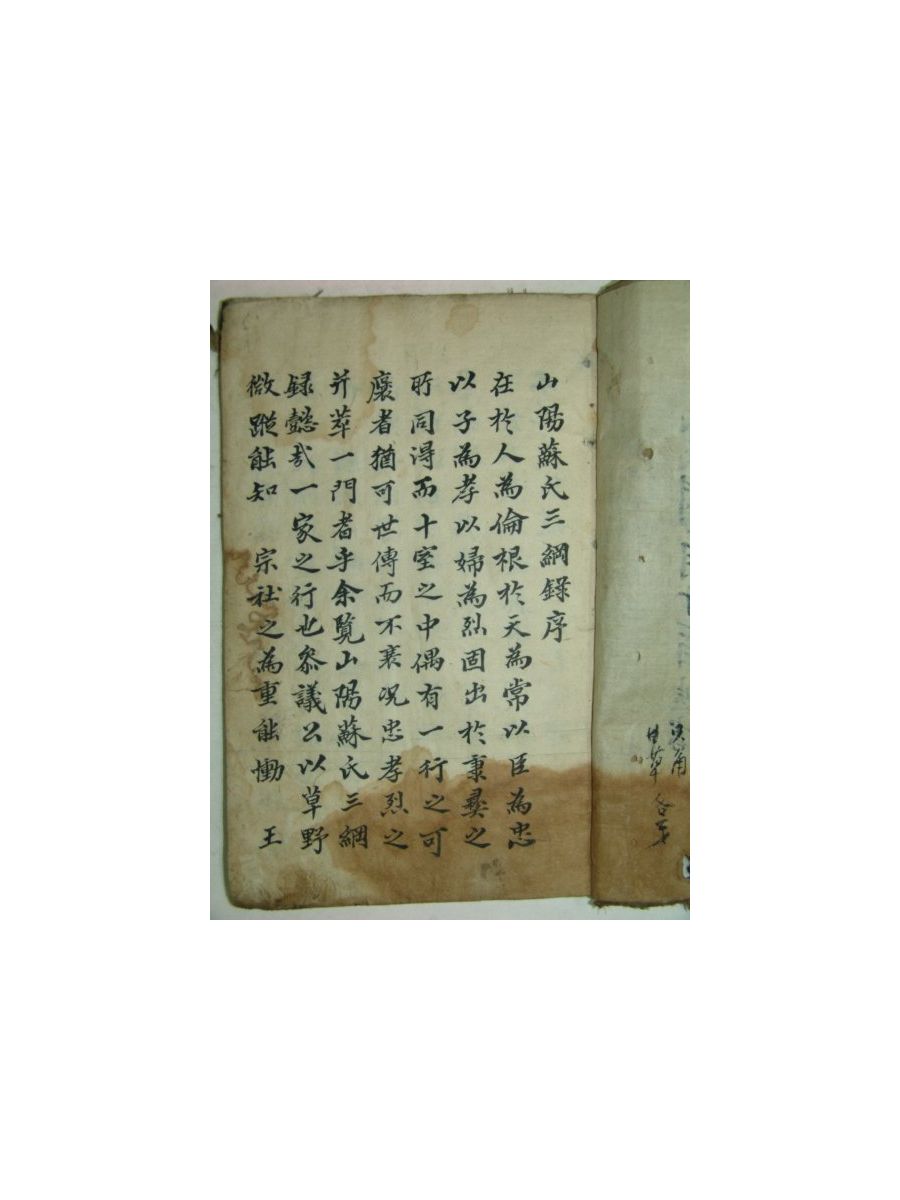 山陽蘇氏三綱錄序
在於人為倫根於天為常以臣為忠
以子為孝以婦為烈固出於秉彜之
所同得而十室之中偶有一行之可
褒者猶可世傳而不衰况忠孝烈之
并萃一門者乎余覽山陽蘇氏三綱
録懿哉一家之行也叅議公以草野
微蹤能知 宗社之為重能慟 王